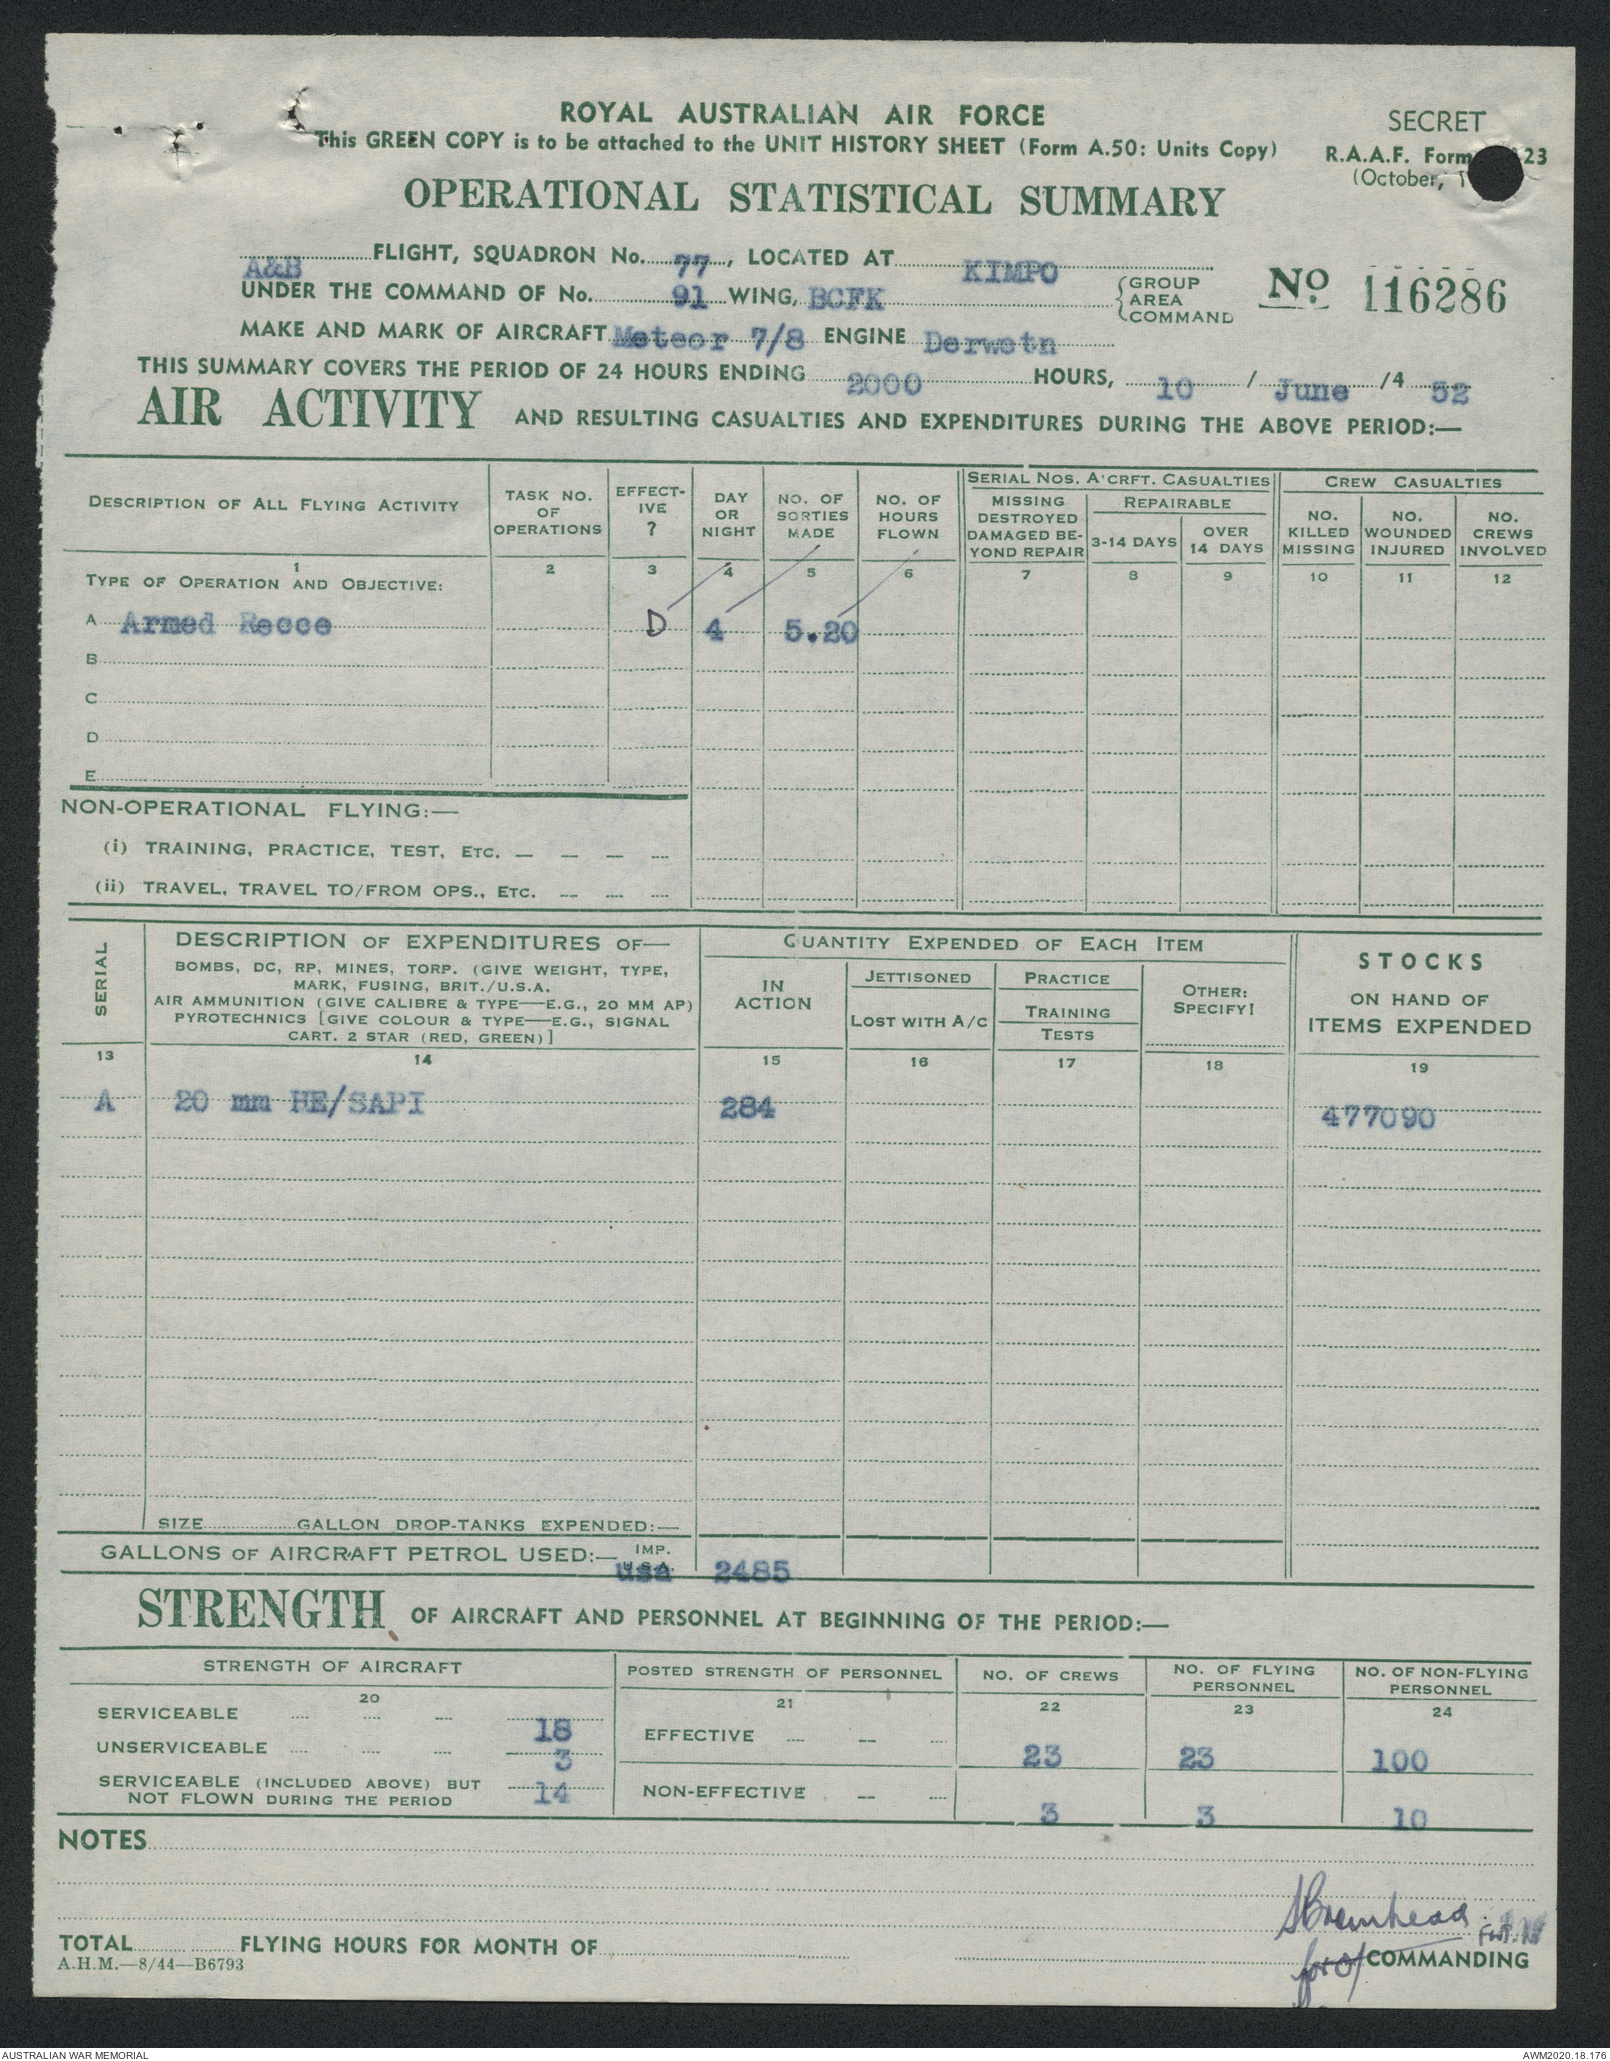 ROYAL AUSTRALIAN AIR FORCE
This GREEN COPY is to be attached to the UNIT HISTORY SHEET (Form A.50: Units Copy)
SECRET
R.A.A.F. Form 23
(October, 1
OPERATIONAL STATISTICAL SUMMARY
A&B FLIGHT, SQUADRON No. 77, LOCATED AT KIMPO
UNDER THE COMMAND OF No. 91 WING, BCFK { GROUP AREA COMMAND
No 116286
MAKE AND MARK OF AIRCRAFT Meteor 7/8 ENGINE Derwetn
THIS SUMMARY COVERS THE PERIOD OF 24 HOURS ENDING 2000 HOURS, 10 / June /4 52
AIR ACTIVITY AND RESULTING CASUALTIES AND EXPENDITURES DURING THE ABOVE PERIOD:—
DESCRIPTION OF ALL FLYING ACTIVITY
TASK NO. OF OPERATIONS
EFFECT-IVE ?
DAY OR NIGHT
NO. OF SORTIES MADE
NO. OF HOURS FLOWN
SERIAL NOS. A'CRFT. CASUALTIES
MISSING DESTROYED DAMAGED BE-YOND REPAIR
REPAIRABLE
3-14 DAYS
OVER 14 DAYS
CREW CASUALTIES
NO. KILLED MISSING
NO. WOUNDED INJURED
NO. CREWS INVOLVED
1 2 3 4 5 6 7 8 9 10 11 12
TYPE OF OPERATION AND OBJECTIVE:
A Armed Recce D 4 5.20
B
C
D
E
NON-OPERATIONAL FLYING:—
(i) TRAINING, PRACTICE, TEST, ETC. — — — —
(ii) TRAVEL, TRAVEL TO/FROM OPS., ETC. — — —
SERIAL
DESCRIPTION OF EXPENDITURES OF—
BOMBS, DC, RP, MINES, TORP. (GIVE WEIGHT, TYPE,
MARK, FUSING, BRIT./U.S.A.
AIR AMMUNITION (GIVE CALIBRE & TYPE—E.G., 20 MM AP)
PYROTECHNICS [GIVE COLOUR & TYPE—E.G., SIGNAL
CART. 2 STAR (RED, GREEN)]
QUANTITY EXPENDED OF EACH ITEM
IN ACTION
JETTISONED
LOST WITH A/C
PRACTICE
TRAINING
TESTS
OTHER: SPECIFY!
STOCKS
ON HAND OF
ITEMS EXPENDED
13 14 15 16 17 18 19
A 20 mm HE/SAPI 284 477090
SIZE GALLON DROP-TANKS EXPENDED:—
GALLONS OF AIRCRAFT PETROL USED:— IMP. usa 2485
STRENGTH OF AIRCRAFT AND PERSONNEL AT BEGINNING OF THE PERIOD:—
STRENGTH OF AIRCRAFT
POSTED STRENGTH OF PERSONNEL
NO. OF CREWS
NO. OF FLYING PERSONNEL
NO. OF NON-FLYING PERSONNEL
20 21 22 23 24
SERVICEABLE 18
UNSERVICEABLE 3
SERVICEABLE (INCLUDED ABOVE) BUT
NOT FLOWN DURING THE PERIOD 14
EFFECTIVE 23 23 100
NON-EFFECTIVE 3 3 10
NOTES
TOTAL FLYING HOURS FOR MONTH OF
for O/ COMMANDING
A.H.M.—8/44—B6793
AUSTRALIAN WAR MEMORIAL
AWM2020.18.176